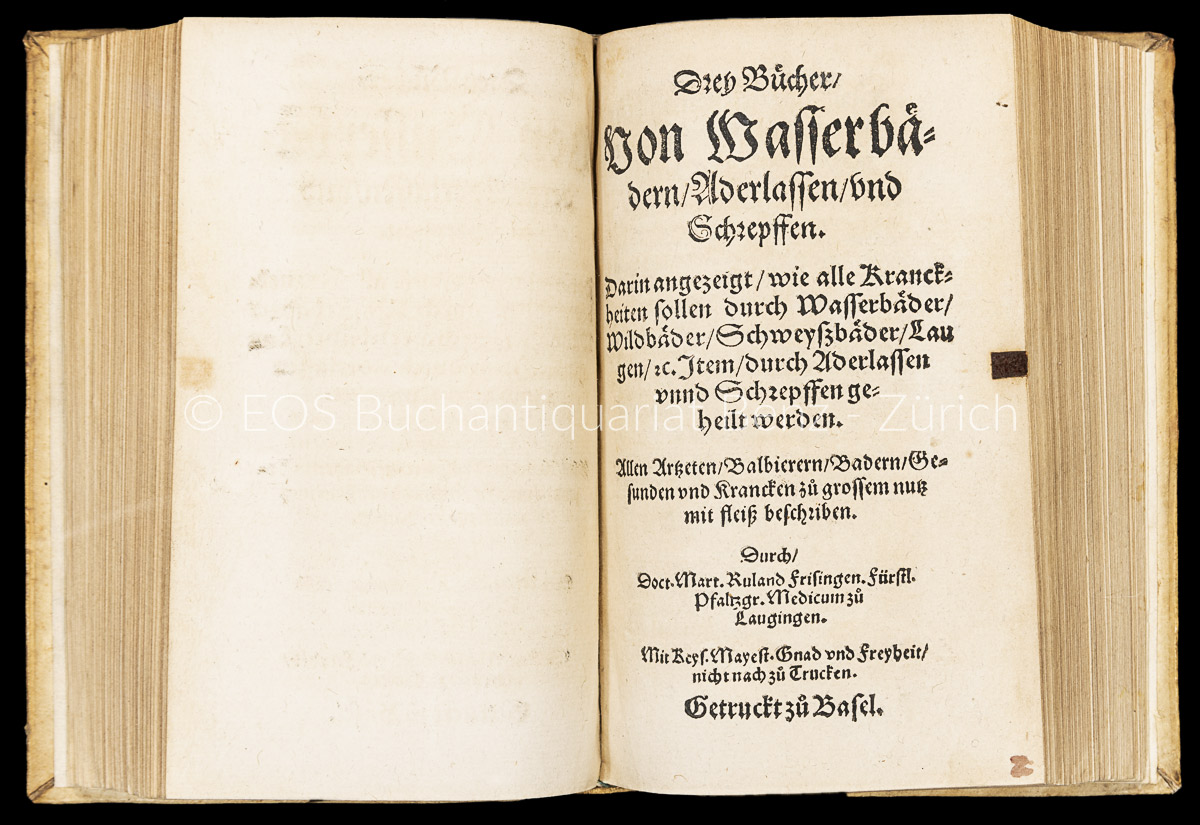 Drey Bücher/
Von Wasserbä-
dern/Aderlassen/vnd
Schrepffen.
Darin angezeigt/wie alle Kranck-
heiten sollen durch Wasserbäder/
Wildbäder/Schweyßbäder/Lau
gen/ꝛc. Item/durch Aderlassen
vnnd Schrepffen ge-
heilt werden.
Allen Artzeten/Balbierern/Badern/Ge-
sunden vnd Krancken zů grossem nutz
mit fleiß beschriben.
Durch/
Doct. Mart. Ruland Frisingen. Fürstl.
Pfaltzgr. Medicum zů
Laugingen.
Mit Keys. Mayest. Gnad vnd Freyheit/
nicht nach zů Trucken.
Getruckt zů Basel.
© EOS Buchantiquariat Zürich